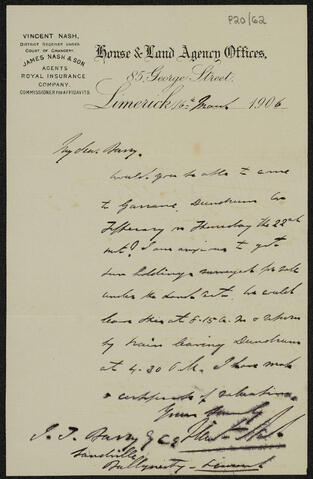 P20/62
VINCENT NASH,
DISTRICT RECEIVER UNDER
COURT OF CHANCERY.
JAMES NASH & SON
AGENTS
ROYAL INSURANCE
COMPANY.
COMMISSIONER FOR AFFIDAVITS.
House & Land Agency Offices,
85, George Street,
Limerick 16th March 1906
My dear Barry,
Would you be able to come
to Garrane, Dundrum Co
Tipperary on Thursday the 22nd
inst? I am anxious to get
some holdings surveyed for sale
under the Land Act. We could
leave this at 8-15 a.m. & return
by train leaving Dundrum
at 4-30 P.M. I have made
a certificate of valuation.
Yours truly
J. J. Barry Esq C.E.
Sandville
Ballyneety - Limerick